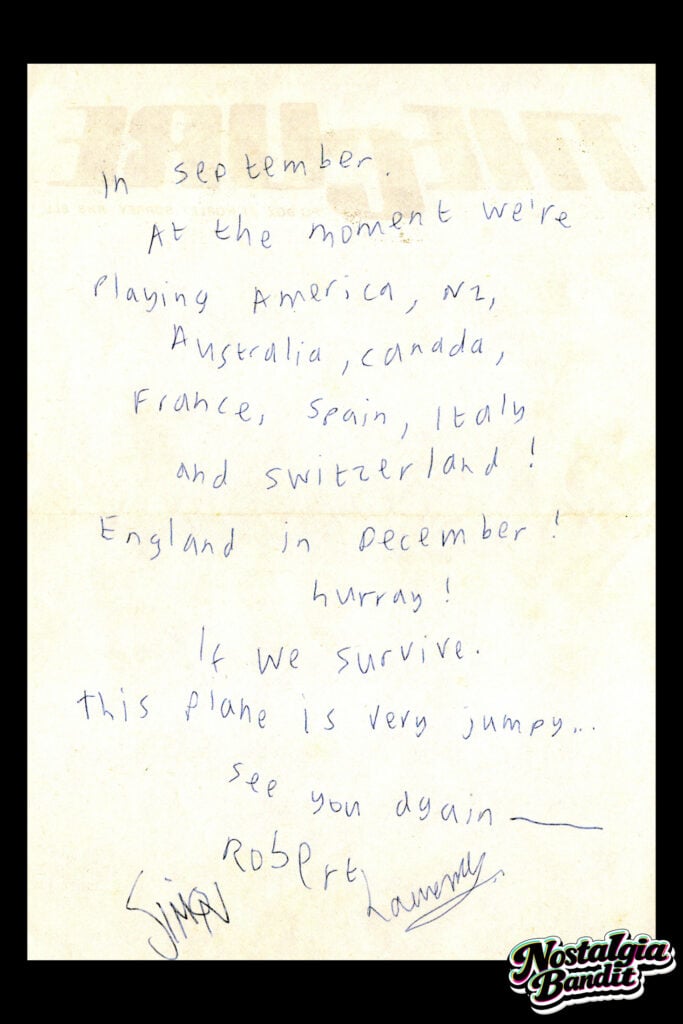 THE CURE
In september.
At the moment we're
Playing America, NZ,
Australia, canada,
France, spain, Italy
and switzerland!
England in December!
hurray!
If we survive.
this plane is very jumpy...
see you again —
Robert
SIMON
Nostalgia
Bandit